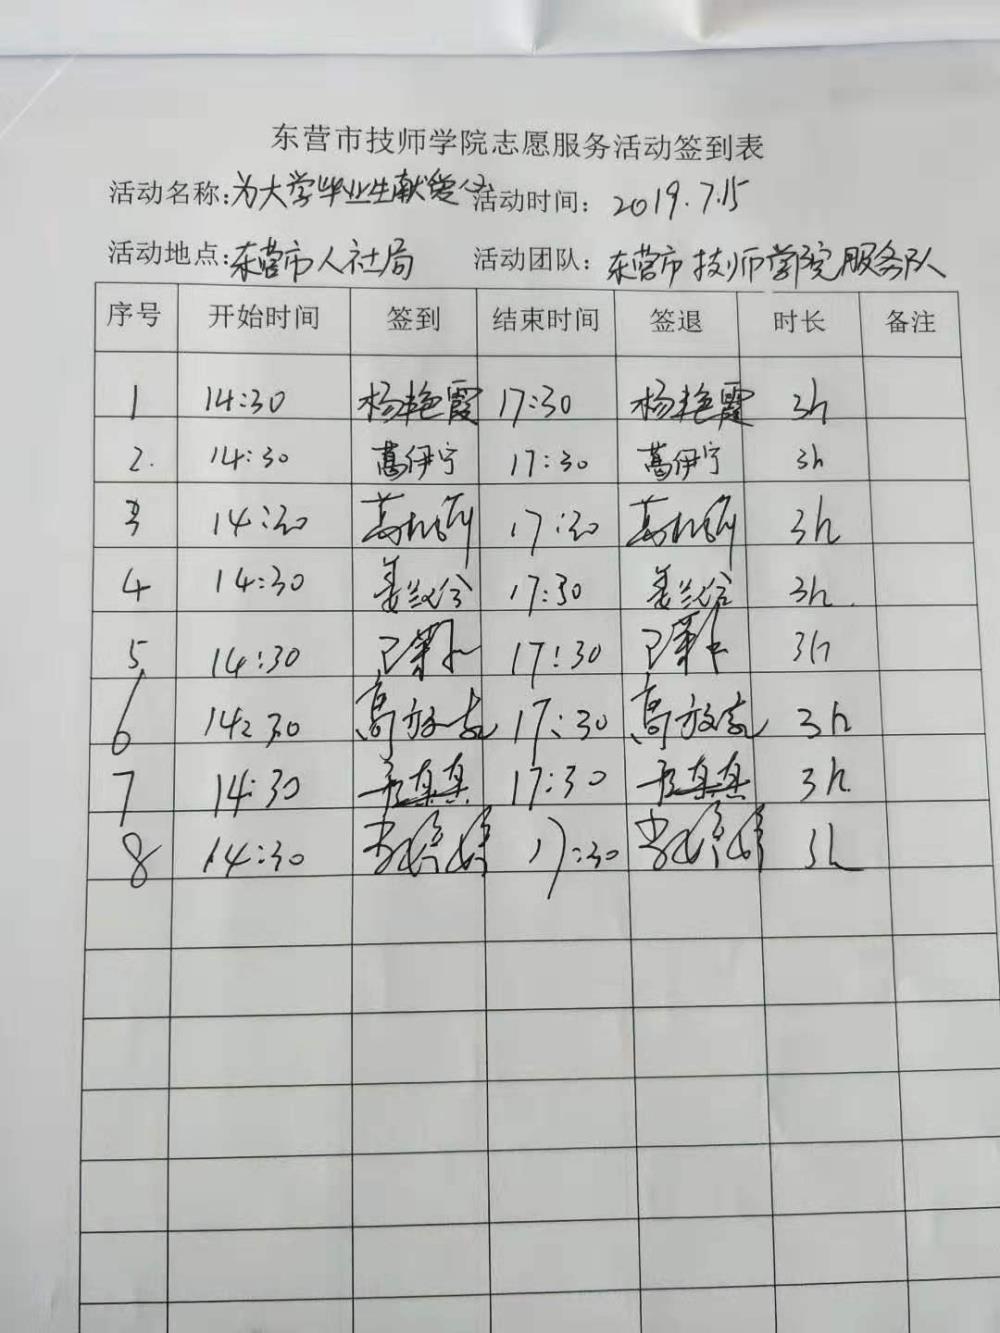 东营市技师学院志愿服务活动签到表
活动名称:为大学毕业生献爱心 活动时间: 2019.7.15
活动地点:东营市人社局 活动团队: 东营市技师学院服务队
序号 开始时间 签到 结束时间 签退 时长 备注
1 14:30 杨艳霞 17:30 杨艳霞 3h
2. 14:30 葛伊宁 17:30 葛伊宁 3h
3 14:30 17:30 3h
4 14:30 17:30 3h.
5 14:30 17:30 3h
6 14:30 17:30 3h
7 14:30 17:30 3h.
8 14:30 17:30 3h